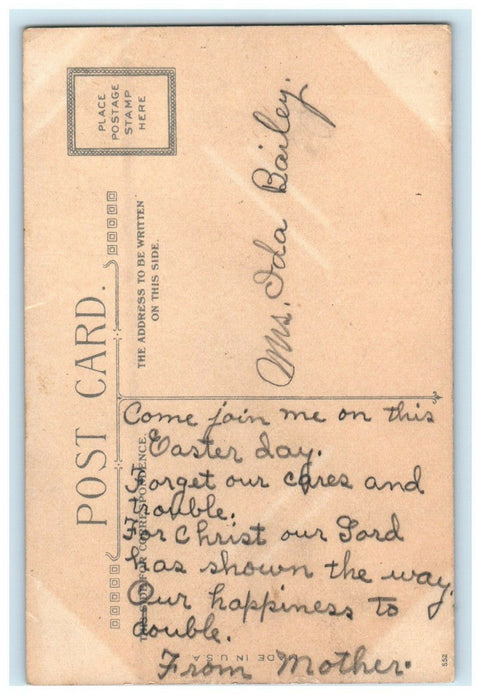 PLACE
POSTAGE
STAMP
HERE
POST CARD.
THE ADDRESS TO BE WRITTEN
ON THIS SIDE.
FOR CORRESPONDENCE.
Mrs. Ida Bailey.
Come join me on this
Easter day.
Forget our cares and
trouble.
For Christ our Lord
has shown the way.
Our happiness to
double.
From Mother.
MADE IN U.S.A.
552